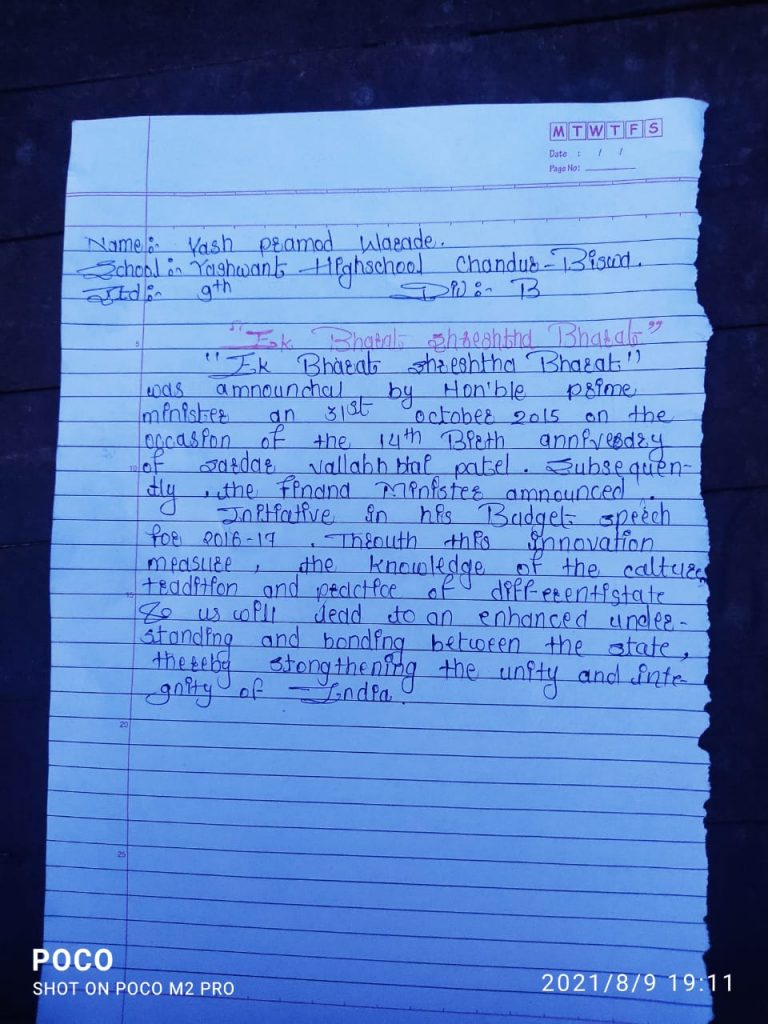 M T W T F S
Date : / /
Page No:
Name:- Yash pramod Warade.
School:- Yashwant Highschool Chandur-Biswa.
Std:- 9th Div:- B
5
"Ek Bharat shreshtha Bharat"
"Ek Bharat shreshtha Bharat"
was amnounchal by Hon'ble prime
minister an 31st october 2015 on the
occasion of the 14th Birth anniversary
10
of sardar vallabhbhai patel. Subsequen-
tly, the finand Minister amnounced.
Initiative in his Budget speech
for 2016-17. Throuth this innovation
measure, the knowledge of the calture
15
tradition and practice of differentistate
& us will lead to an enhanced under-
standing and bonding between the state,
thereby stongthening the unity and inte-
gnity of India.
20
25
POCO
SHOT ON POCO M2 PRO
2021/8/9 19:11